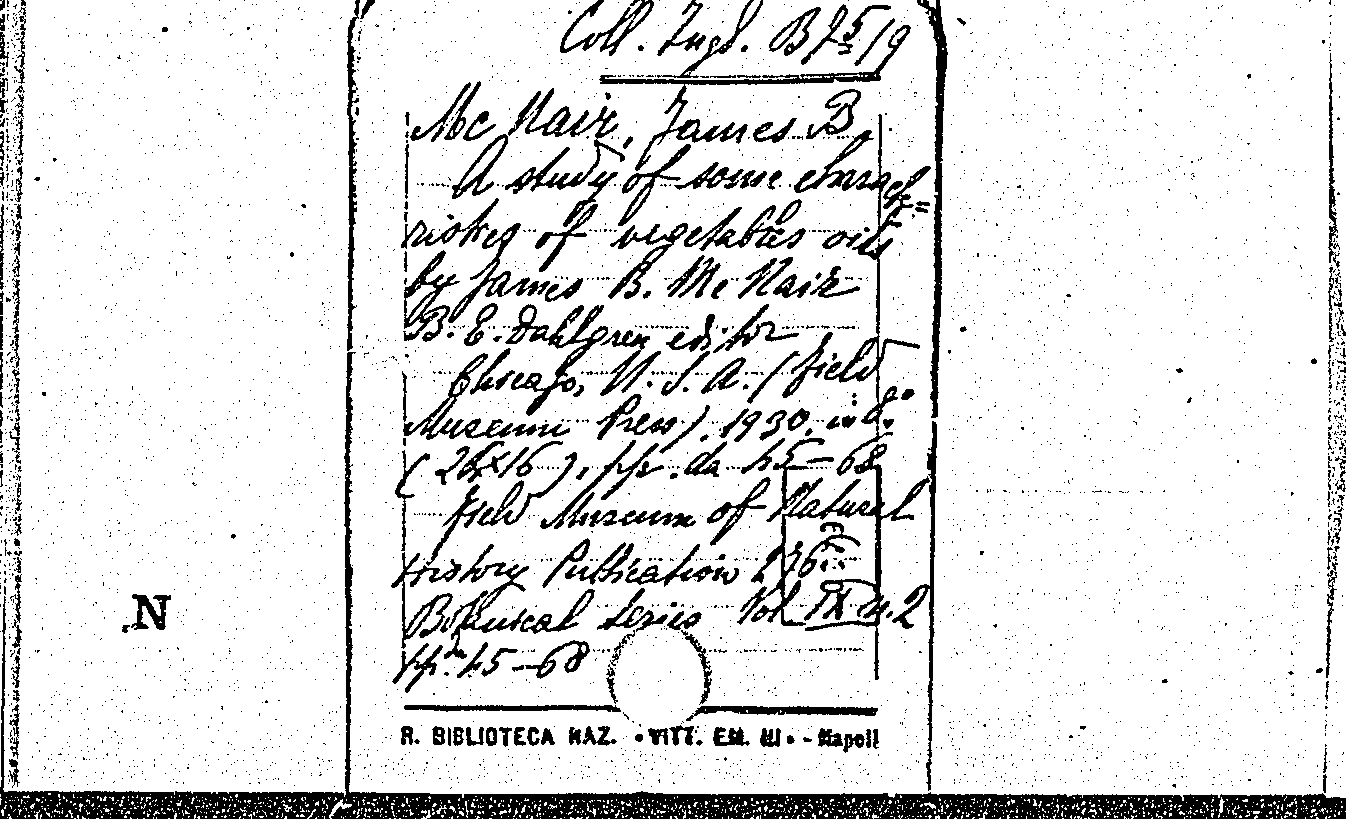 Coll. Ingl. B 25/9
Mc Nair, James B.
A study of some charact=
ristes of vegetables oils
by James B. Mc Nair
B. E. Dahlgren editor
Chicago, U. S. A. (Field
Museum Press). 1930. in 8.°
(24x16), pp. da 45-68
Field Museum of Natural
History Publication 276
Botanical Series Vol. IX n.2
pp. 45-68
N
R. BIBLIOTECA NAZ. "VITT. EM. III" - Napoli